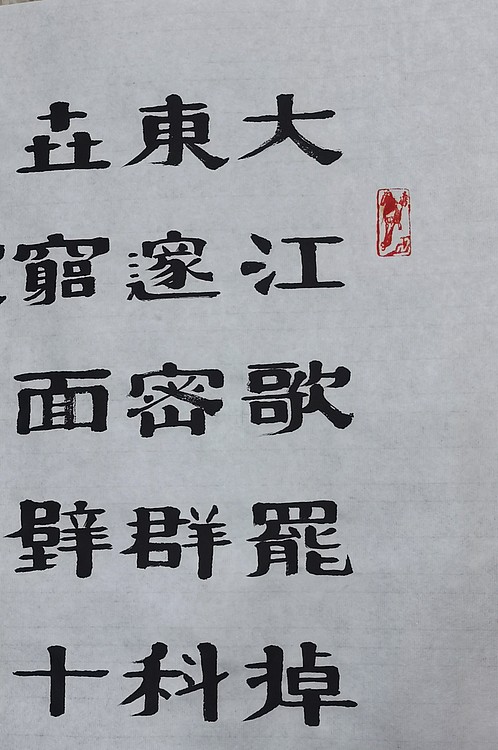 大江歌罷掉
東邃密群科
壵窮面壁十